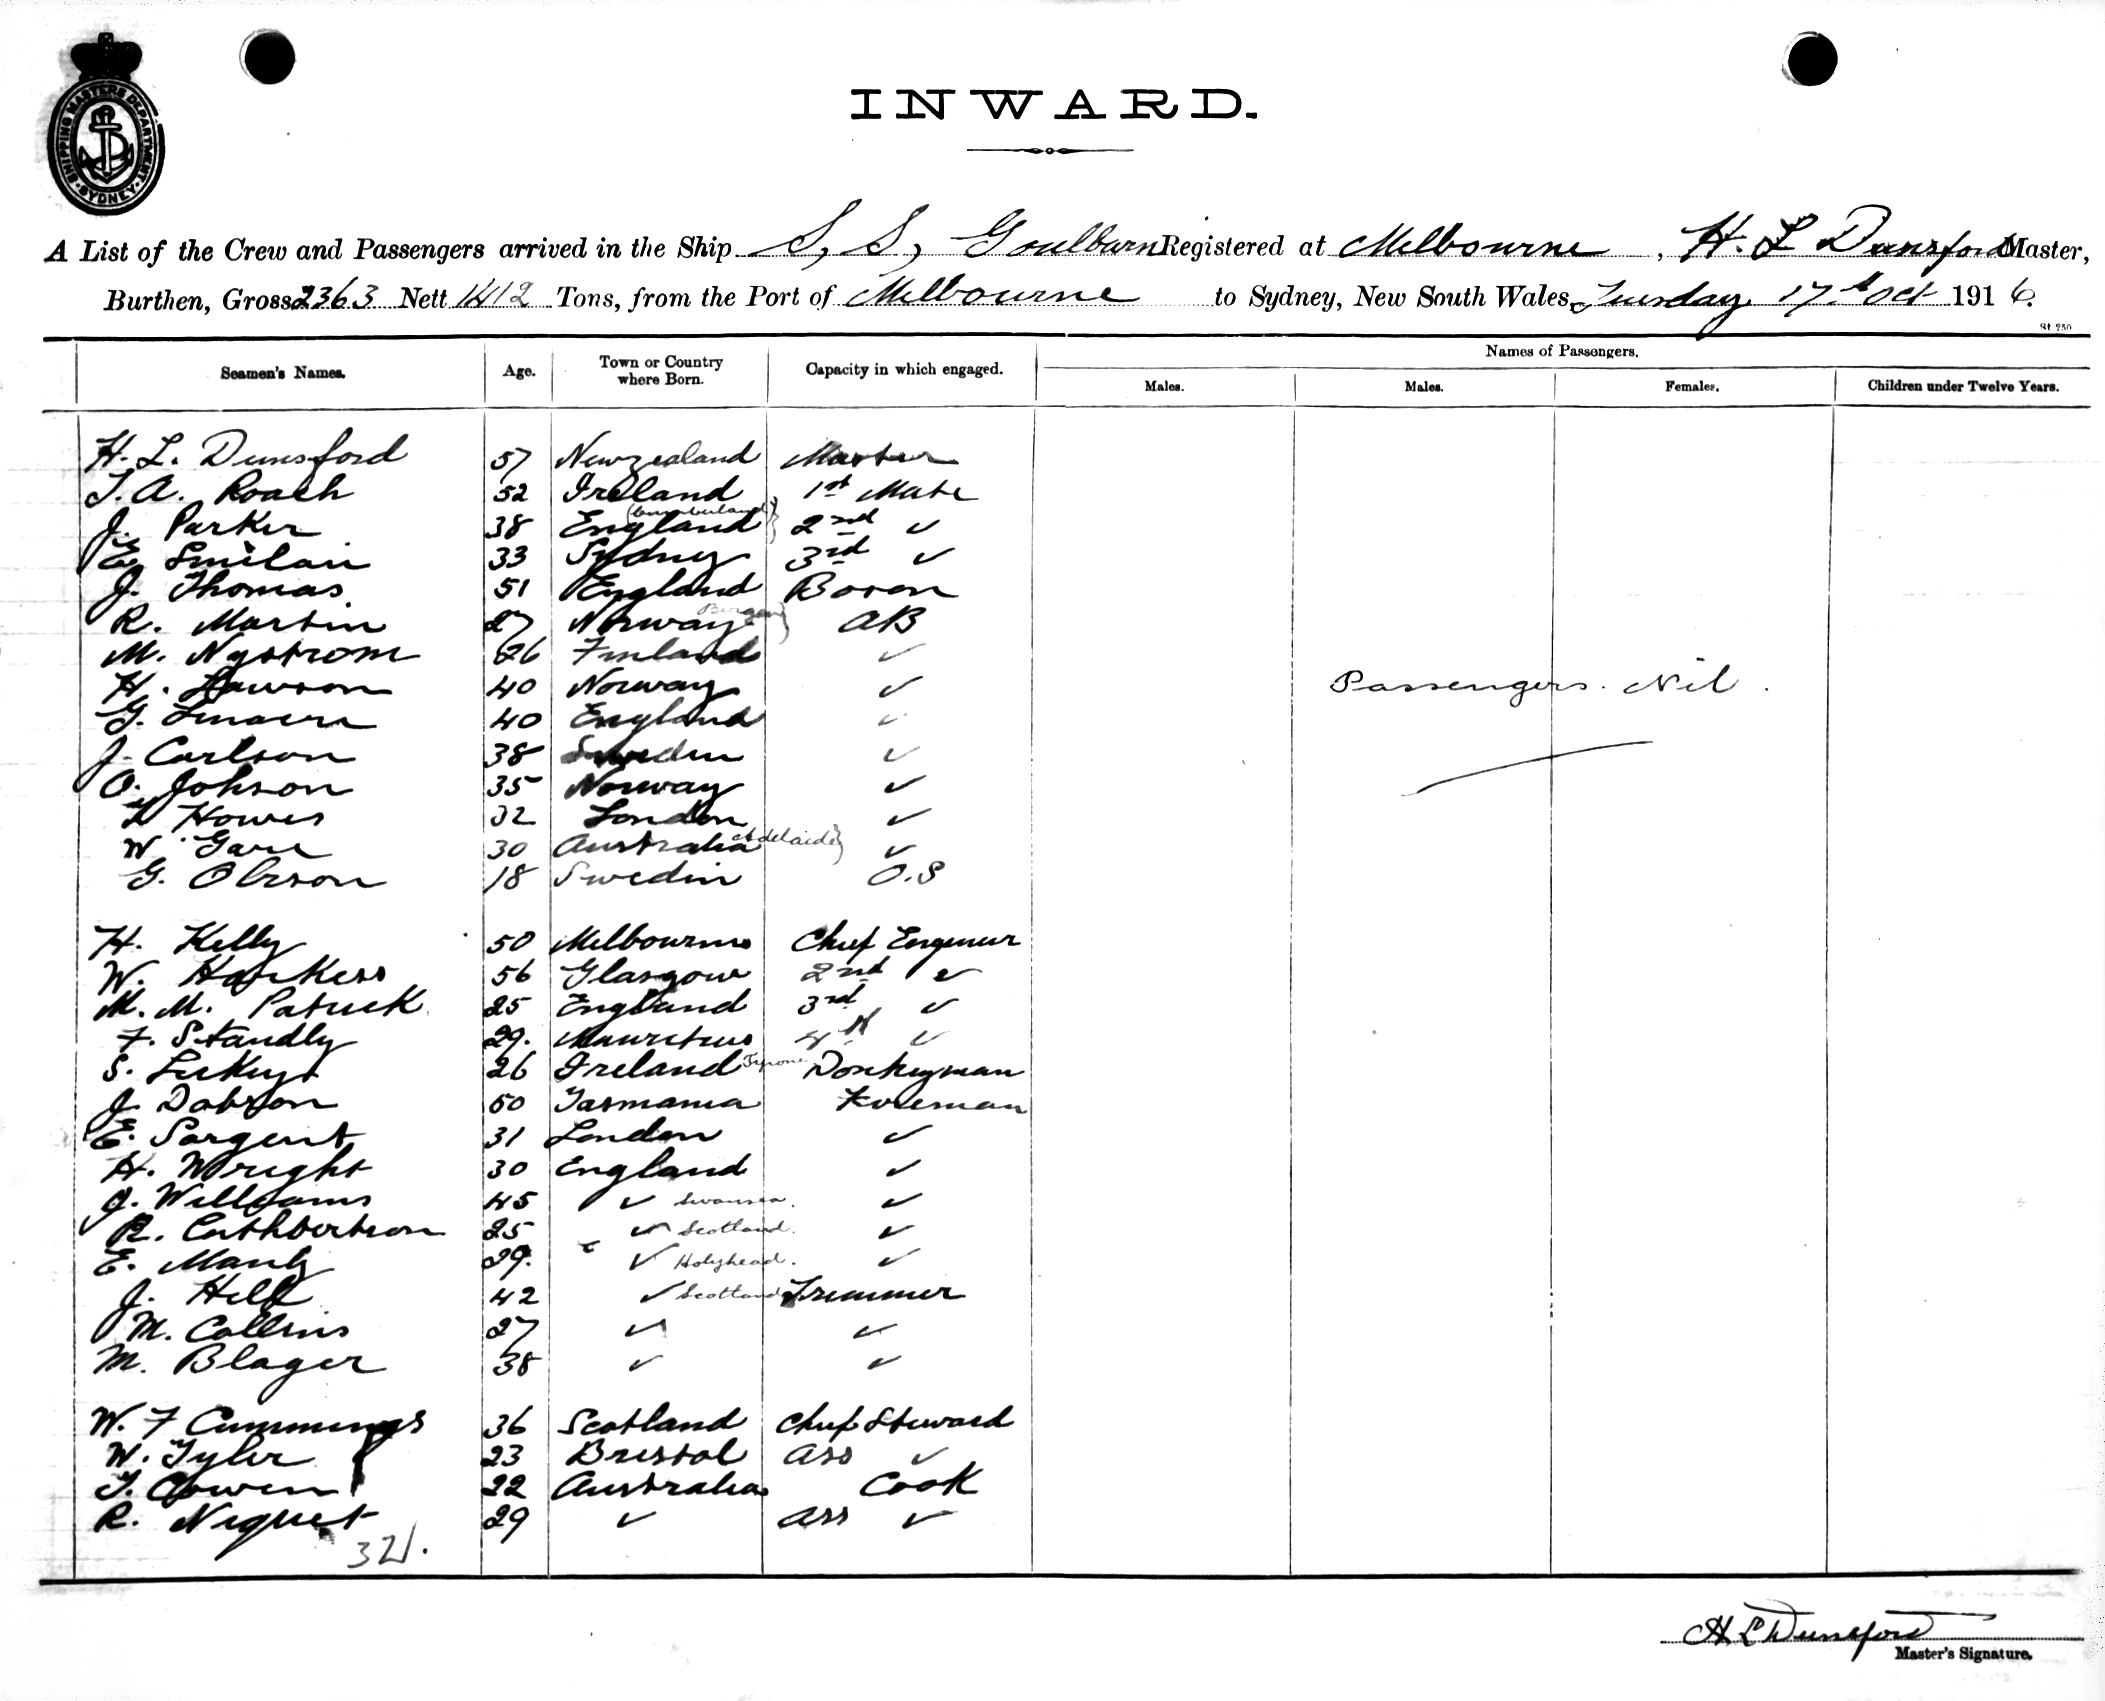 SHIPPING MASTERS DEPARTMENT
SYDNEY
INWARD.
A List of the Crew and Passengers arrived in the Ship S, S, Goulburn Registered at Melbourne, H. L Dunsford Master,
Burthen, Gross 2363 Nett 1412 Tons, from the Port of Melbourne to Sydney, New South Wales, Tuesday 17th Oct 1916.
St 250
Seamen's Names. Age. Town or Country where Born. Capacity in which engaged. Names of Passengers.
Males. Males. Females. Children under Twelve Years.
H. L. Dunsford 57 Newzealand Master
T. A. Roach 52 Ireland 1st Mate
J. Parker 38 England (Cumberland) 2nd ✓
E. 33 Sydney 3rd ✓
J. Thomas 51 England Bosen
R. Martin 27 Norway Bergen AB
M. Nystrom 26 Finland ✓
H. Lawson 40 Norway ✓
Passengers. Nil.
G. 40 England ✓
J. Carlson 38 Sweden ✓
O. Johson 35 Norway ✓
Howes 32 London ✓
W. Gare 30 Australia Adelaide ✓
G. Olsson 18 Swedin O.S
H. Kelly 50 Melbourne Chief Engineer
W. Harkess 56 Glasgow 2nd ✓
M. M. Patrick 25 England 3rd ✓
F. Standly 29. Mauritius 4th ✓
S. 26 Ireland Tyrone Donkeyman
J. Dobson 50 Tasmania Fireman
E. Sargent 31 London ✓
H. Wright 30 England ✓
J. Williams 45 ✓ Swansea. ✓
R. Cuthbertson 25 ✓ Scotland. ✓
E. Manly 29. ✓ Holyhead. ✓
J. Hill 42 ✓ Scotland Trimmer
M. Collins 27 ✓ ✓
M. Blager 38 ✓ ✓
W. F Cummings 36 Scotland Chief Steward
W. Tyler 23 Bristol Ass ✓
T. Cowen 22 Australia Cook
R. Niquet 29 ✓ Ass ✓
32.
H L Dunsford
Master's Signature.